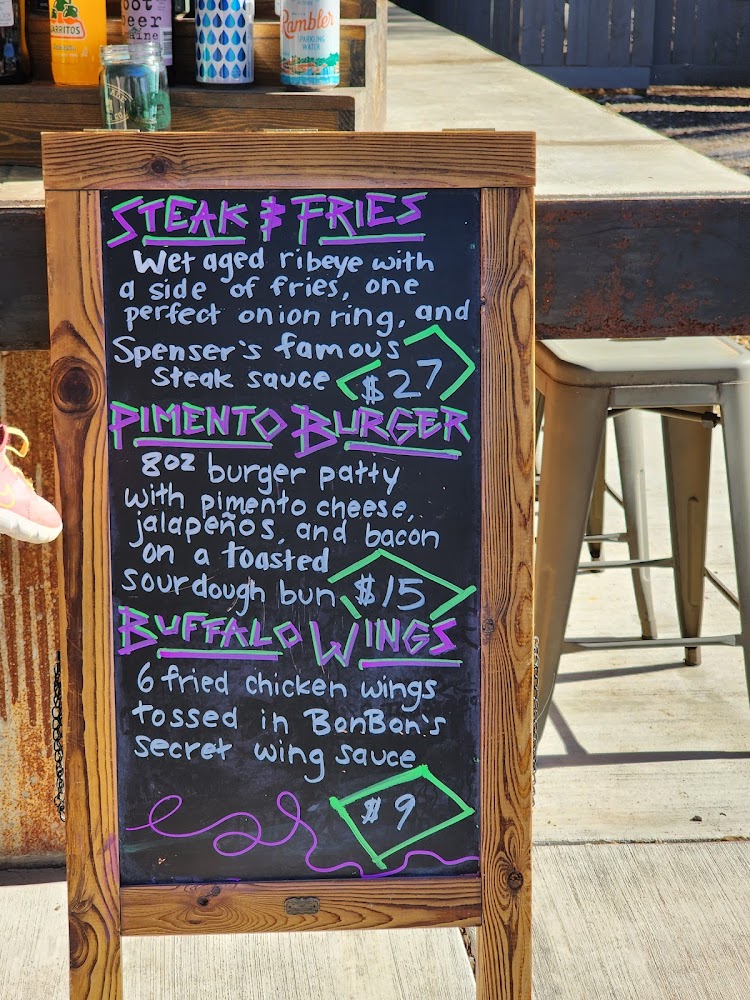 JARRITOS
oot
beer
Rambler
SPARKLING
WATER
STEAK & FRIES
Wet aged ribeye with
a side of fries, one
perfect onion ring, and
Spenser's famous
steak sauce $27
PIMENTO BURGER
8oz burger patty
with pimento cheese,
jalapeños, and bacon
on a toasted
sourdough bun $15
BUFFALO WINGS
6 fried chicken wings
tossed in BonBon's
secret wing sauce
$9